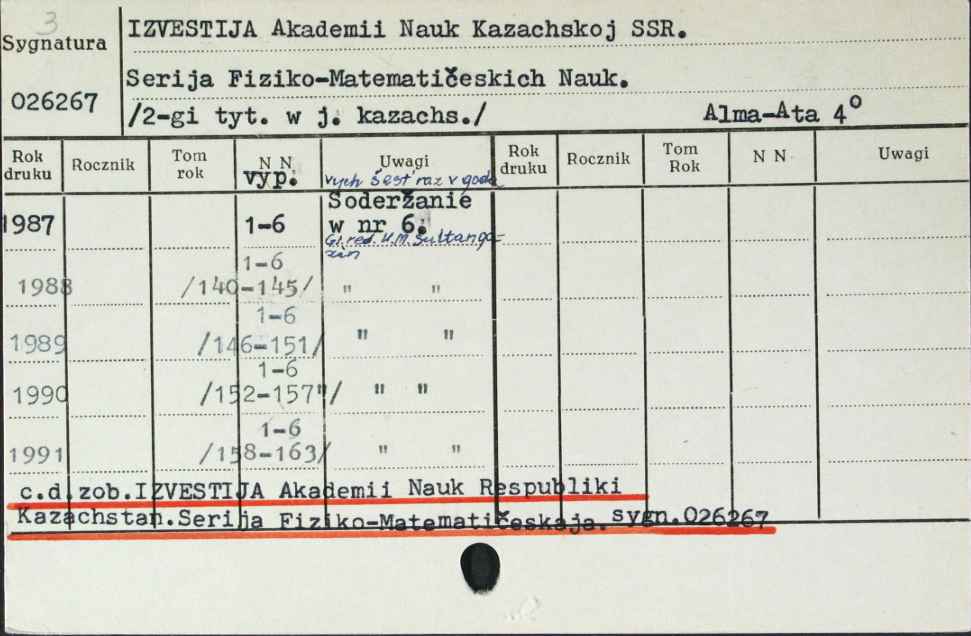 3
Sygnatura
026267
IZVESTIJA Akademii Nauk Kazachskoj SSR.
Serija Fiziko-Matematičeskich Nauk.
/2-gi tyt. w j. kazachs./ Alma-Ata 4º
Rok druku Rocznik Tom rok N N vyp. Uwagi Rok druku Rocznik Tom Rok N N Uwagi
vych šest' raz v goda
1987 1-6 Soderžanie
w nr 6.
Gl. red. U.M. Sultanga-
zin
1-6
1988 /140-145/ " "
1-6
1989 /146-151/ " "
1-6
1990 /152-157"/ " "
1-6
1991 /158-163/ " "
c.d.zob.IZVESTIJA Akademii Nauk Respubliki
Kazachstan.Serija Fiziko-Matematičeskaja. sygn.026267